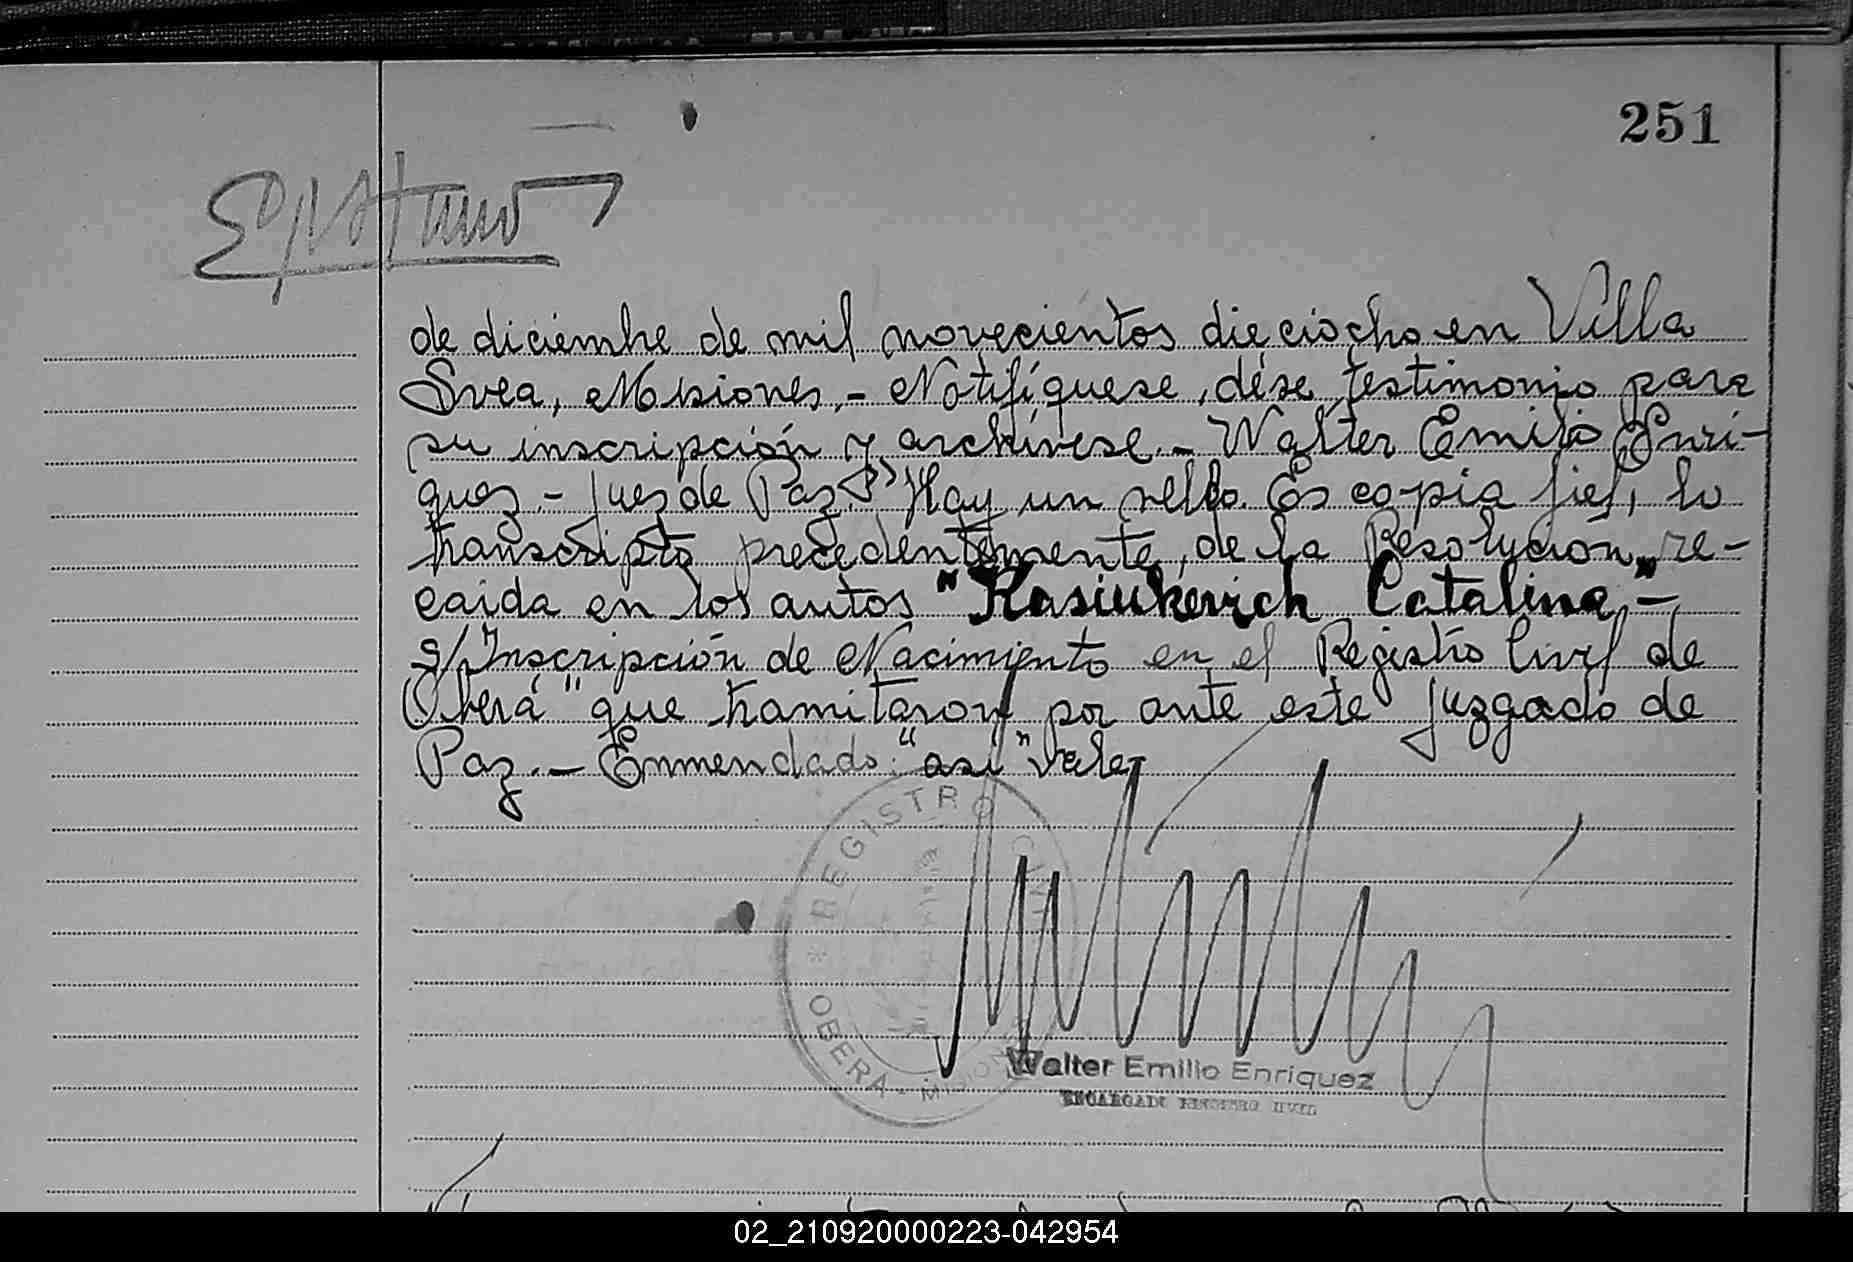 251
de diciembre de mil novecientos dieciocho en Villa
Svea, Misiones.- Notifíquese, dése testimonio para
su inscripción y archívese.- Walter Emilio Enri-
quez.- Juez de Paz." Hay un sello. Es copia fiel, lo
transcripto precedentemente, de la Resolución re-
caida en los autos "Kasiukevich Catalina,-
s/Inscripción de Nacimiento en el Registro Civil de
Oberá" que tramitaron por ante este Juzgado de
Paz.- Enmendado: "asi" Vale
REGISTRO CIVIL
OBERA - MISIONES
Walter Emilio Enriquez
ENCARGADO REGISTRO CIVIL
02_210920000223-042954